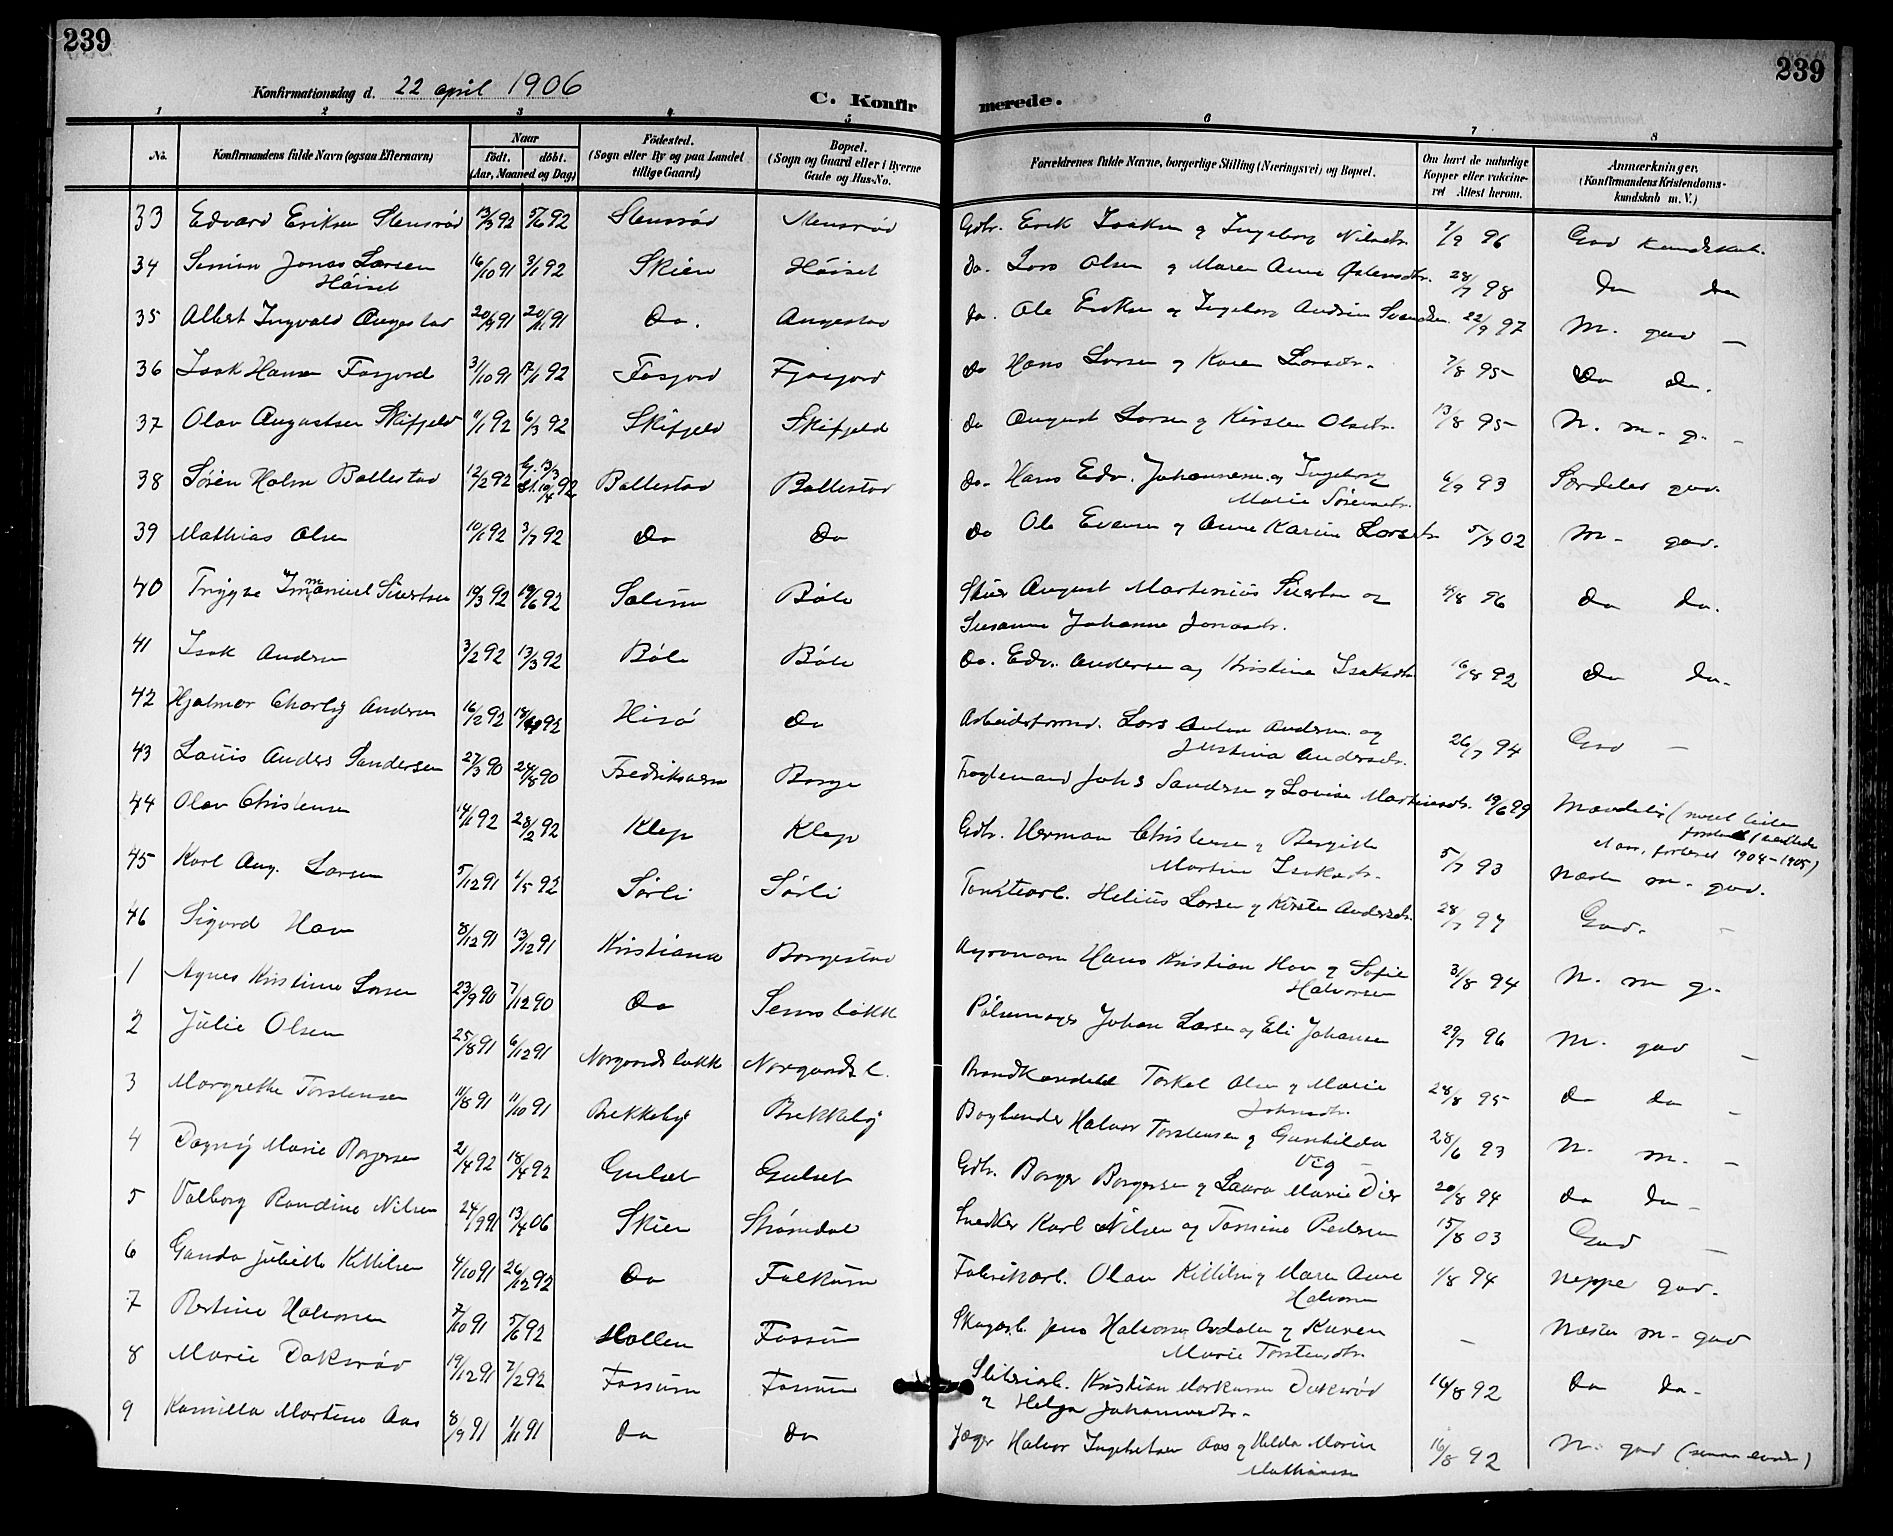 239
239
Konfirmationsdag d. 22 april 1906
C. Konfirmerede.
1 2 3 4 5 6 7 8
No.
Konfirmandens fulde Navn (ogsaa Efternavn)
Naar
födt. döbt.
(Aar, Maaned og Dag)
Födested.
(Sogn eller By og paa Landet
tillige Gaard)
Bopæl.
(Sogn og Gaard eller i Byerne
Gade og Hus-No.
Forældrenes fulde Navne, borgerlige Stilling (Næringsvei) og Bopæl.
Om havt de naturlige
Kopper eller vakcine-
ret Attest herom.
Anmærkninger.
(Konfirmandens Kristendoms-
kundskab m. V.)
33 Edvard Eriksen Stensrød 13/3 92 5/6 92 Stensrød Stensrød Gbr. Erik Isaksen og Ingeborg Nilsdtr. 7/9 96 God kundskab.
34 Simon Jonas Larsen 16/10 91 3/1 92 Skien Høiset do. Lars Olsen og Maren Anne 28/7 98 do do
Høiset
35 Albert Ingvald Augestad 20/9 91 20/11 91 Do. Augestad do. Ole Eriksen og Ingeborg Andrine 22/9 97 M. god
36 Isak Hansen Fosjord 31/10 91 17/1 92 Fosjord Fjosjord do Hans Larsen og Karen Larsdtr. 7/8 95 do do.
37 Olav Augustsen Skifjeld 11/1 92 6/3 92 Skifjeld Skifjeld do August Larsen og Kirsten Olsdtr. 13/8 95 N. m. g.
38 Søren Holm Ballestad 12/2 92 Ballestad Ballestad do. Hans Edv. Johannesen og Ingeborg 6/9 93 Særdeles god.
Marie Sørensdtr.
39 Mathias Olsen 10/1 92 3/7 92 Do Do do Ole Evensen og Anne Karine Larsdtr 5/7 02 M. god.
40 Trygve Immanuel Sivertsen 19/3 92 19/6 92 Solum Bøle Skier August Martinius Sivertsen og 4/8 96 do do.
Susanne Johanne Jonasdtr.
41 Isak Andersen 3/2 92 13/3 92 Bøle Bøle do. Edv. Andersen og Kristine Isaksdtr 16/8 92 do do.
42 Hjalmar Charly Andersen 16/2 92 Hisø Do Arbeidsformd. Lars Anton Andersen og 26/7 94 God
Justina Andersdtr.
43 Louis Anders Sandersen 27/3 90 24/8 90 Fredriksværn Borge Fragtemand Johs Sandersen og Lovise Martinesdtr. 19/6 99 Maadelig (meget liden
44 Olav Christensen 14/1 92 28/2 92 Klep Klep Gbr. Herman Christensen og Bergitte 5/7 93 Næsten m. god.
Martine Isaksdtr. 1904-1905)
45 Karl Aug. Larsen 5/12 91 1/5 92 Sørli Sørli Tomtearb. Helius Larsen og Kirsten Andersdtr. 28/7 97 God.
46 Sigurd Hov 8/12 91 13/12 91 Kristiania Borgestad Agronom Hans Kristian Hov og Sofie 31/8 94 N. m g.
Halvorsen
1 Agnes Kristine Larsen 23/9 90 7/12 90 Do Semsløkk Pølsemager Johan Larsen og Eli Johansen 29/7 96 M. god
2 Julie Olsen 25/8 91 6/12 91 Norgaardsløkk Norgaardsl. Brandkonstabel Torkel Olsen og Marie 28/8 95 do do
Johnsdtr.
3 Margrethe Torstensen 11/8 91 11/10 91 Brekkeby Brekkeby Bogbinder Halvor Torstensen og Gunhilda 28/6 93 N. m.
Vig
4 Dagny Marie Borgersen 2/4 92 18/4 92 Gulset Gulset Gbr. Borger Borgersen og Laura Marie Dier 20/8 94 do do
5 Valborg Randine Nilsen 24/9 91 13/4 06 Skien Strømdal Snedker Karl Nilsen og Tomine Pedersen 15/8 03 God
6 Ganda Juliette Kittilsen 4/10 91 26/12 92 Do Falkum Fabrikarb. Olav Kittilsen og Maren Anne 1/8 94 neppe god.
Halvorsen
7 Bertine Halvorsen 7/10 91 5/6 92 Hollen Fossum Skogarb. Jens Halvorsen Ordalen og Karen — Næsten m. god
Marie Torstensdtr.
8 Marie Doksrød 19/12 91 7/2 92 Fossum Fossum Sliberiarb. Kristian Markussen Doksrød 16/8 92 do do.
og Helga Johannesdtr.
9 Kamilla Martine Aas 8/9 91 1/11 91 Do Do Jæger Halvor Ingebretsen Aas og Hilda Marie 16/8 92 N. god
Mathiasen